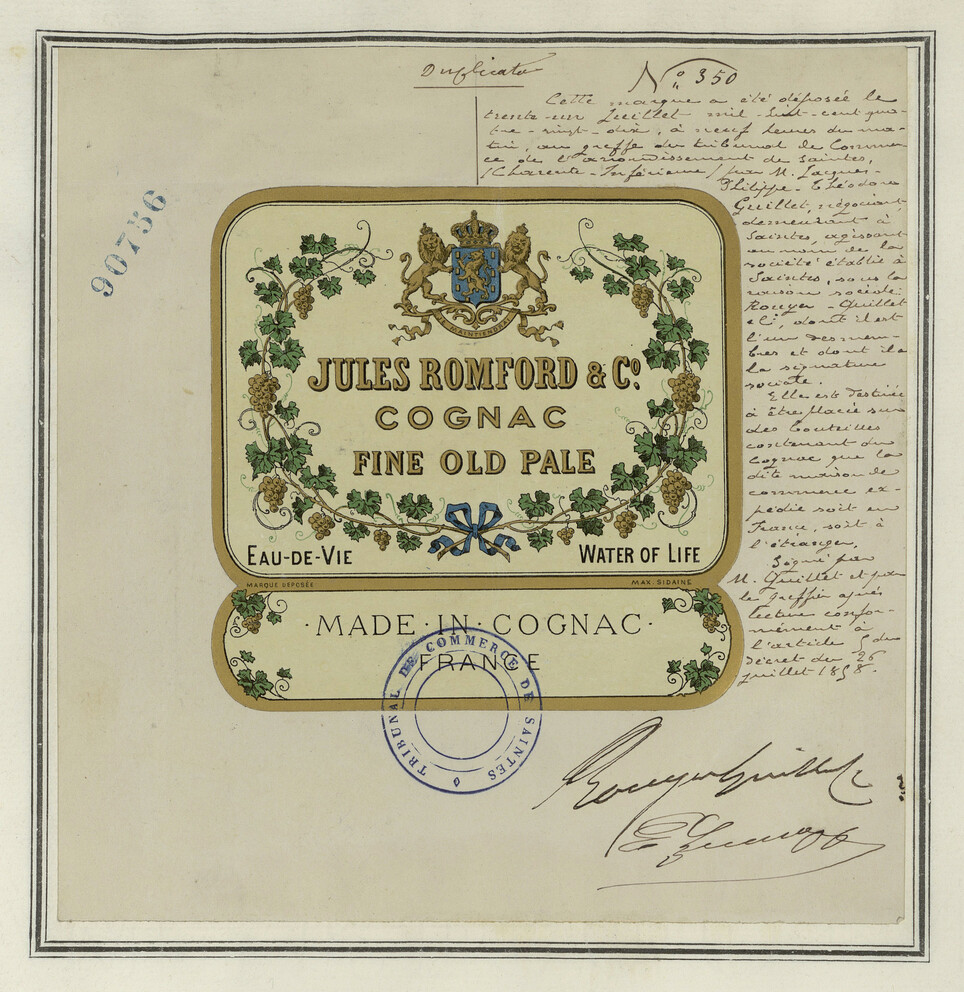 Duplicata
N° 350
Cette marque a été déposée le
trente-un Juillet mil-huit-cent qua-
tre-vingt-dix, à neuf heures du ma-
tin, au greffe du tribunal de Commer-
ce de l'arrondissement de Saintes,
(Charente-Inférieure) par M. Jacques-
Philippe-Théodore
Guillet, négociant,
demeurant à
Saintes, agissant
au nom de la
société établie à
Saintes, sous la
raison sociale:
Rouyer-Guillet
et Cie, dont il est
l'un des mem-
bres et dont il a
la signature
sociale.
Elle est destinée
à être placée sur
des bouteilles
contenant du
Cognac que la
dite maison de
commerce ex-
pédie soit en
France, soit à
l'étranger.
Signé par
M. Guillet et par
le greffier après
lecture confor-
mément à
l'article 5 du
décret du 26
juillet 1858.
90756
MAINTIENDRAI
JULES ROMFORD & Co.
COGNAC
FINE OLD PALE
EAU-DE-VIE WATER OF LIFE
MARQUE DÉPOSÉE MAX. SIDAINE
·MADE·IN·COGNAC·
FRANCE
TRIBUNAL DE COMMERCE DE SAINTES
Rouyer Guillet &